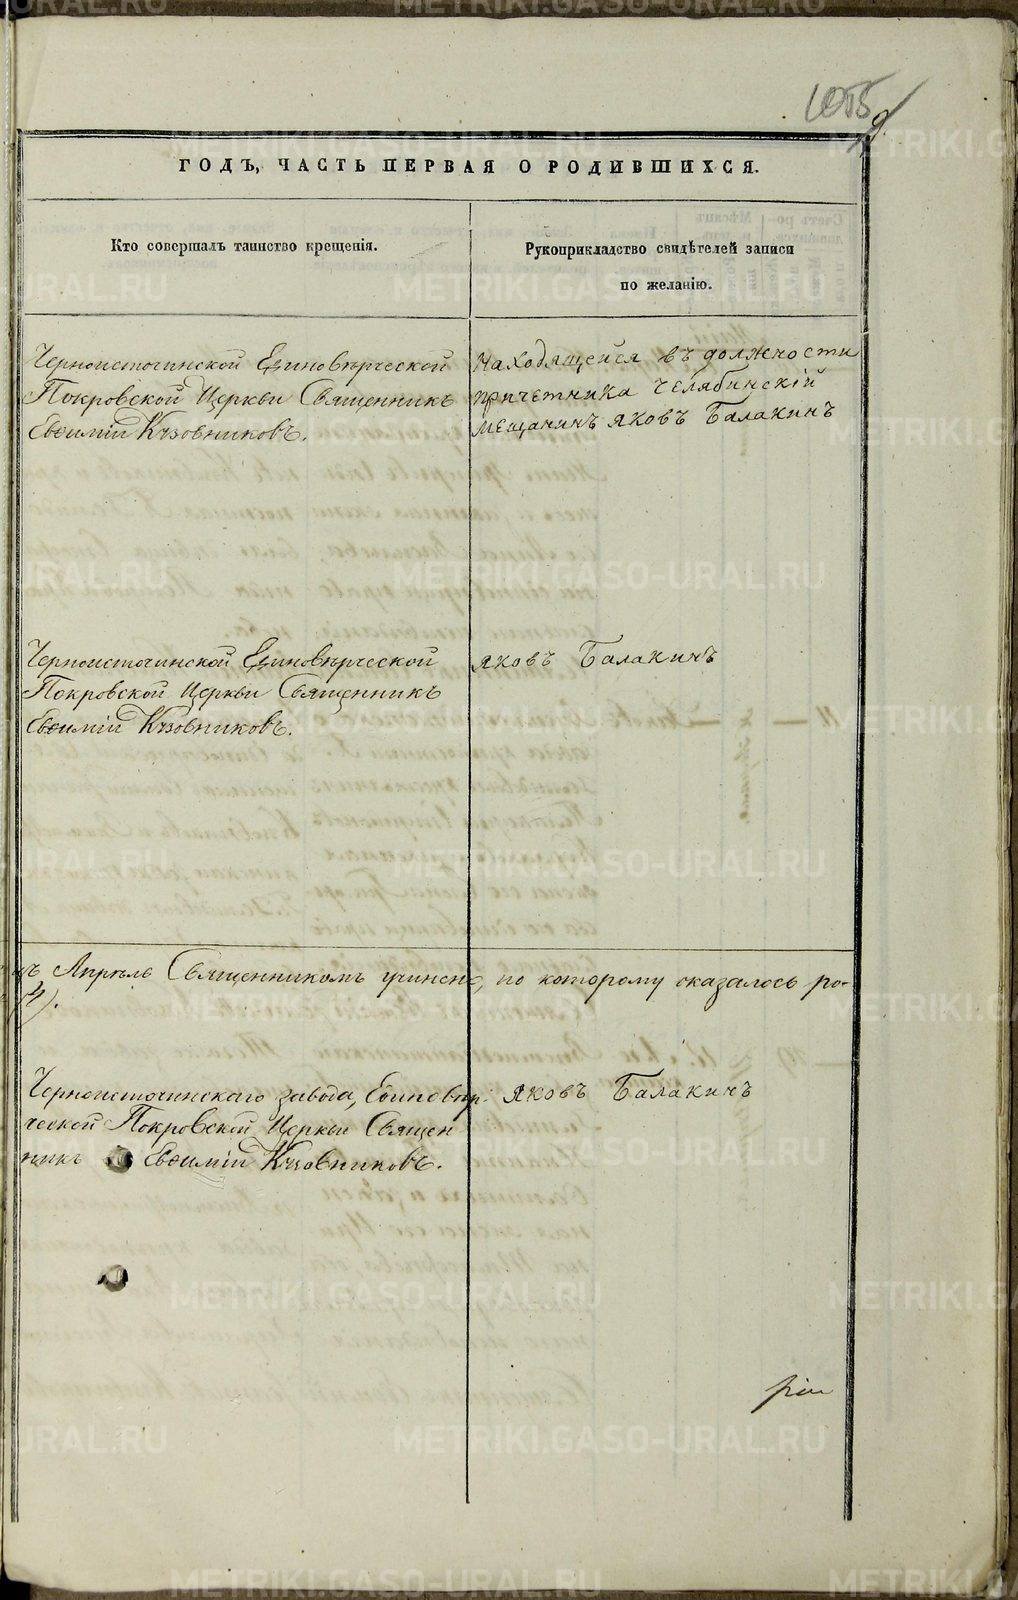 ГОДЪ, ЧАСТЬ ПЕРВАЯ О РОДИВШИХСЯ.
Кто совершалъ таинство крещенія.
Рукоприкладство свидѣтелей записи
по желанію.
Черноисточинской Единовѣрческой
Покровской Церкви Священникъ
Евѳимій Кузовниковъ.
Находящейся въ должности
причетника Челябинскій
мещанинъ Яковъ Балакинъ
Черноисточинской Единовѣрческой
Покровской Церкви Священникъ
Евѳимій Кузовниковъ.
Яковъ Балакинъ
Апрѣлѣ Священникомъ учинено, по которому оказалось ро-
Черноисточинскаго завода, Единовѣр-
ческой Покровской Церкви Священ
никъ Евѳимій Кузовниковъ.
Яковъ Балакинъ
METRIKI.GASO-URAL.RU